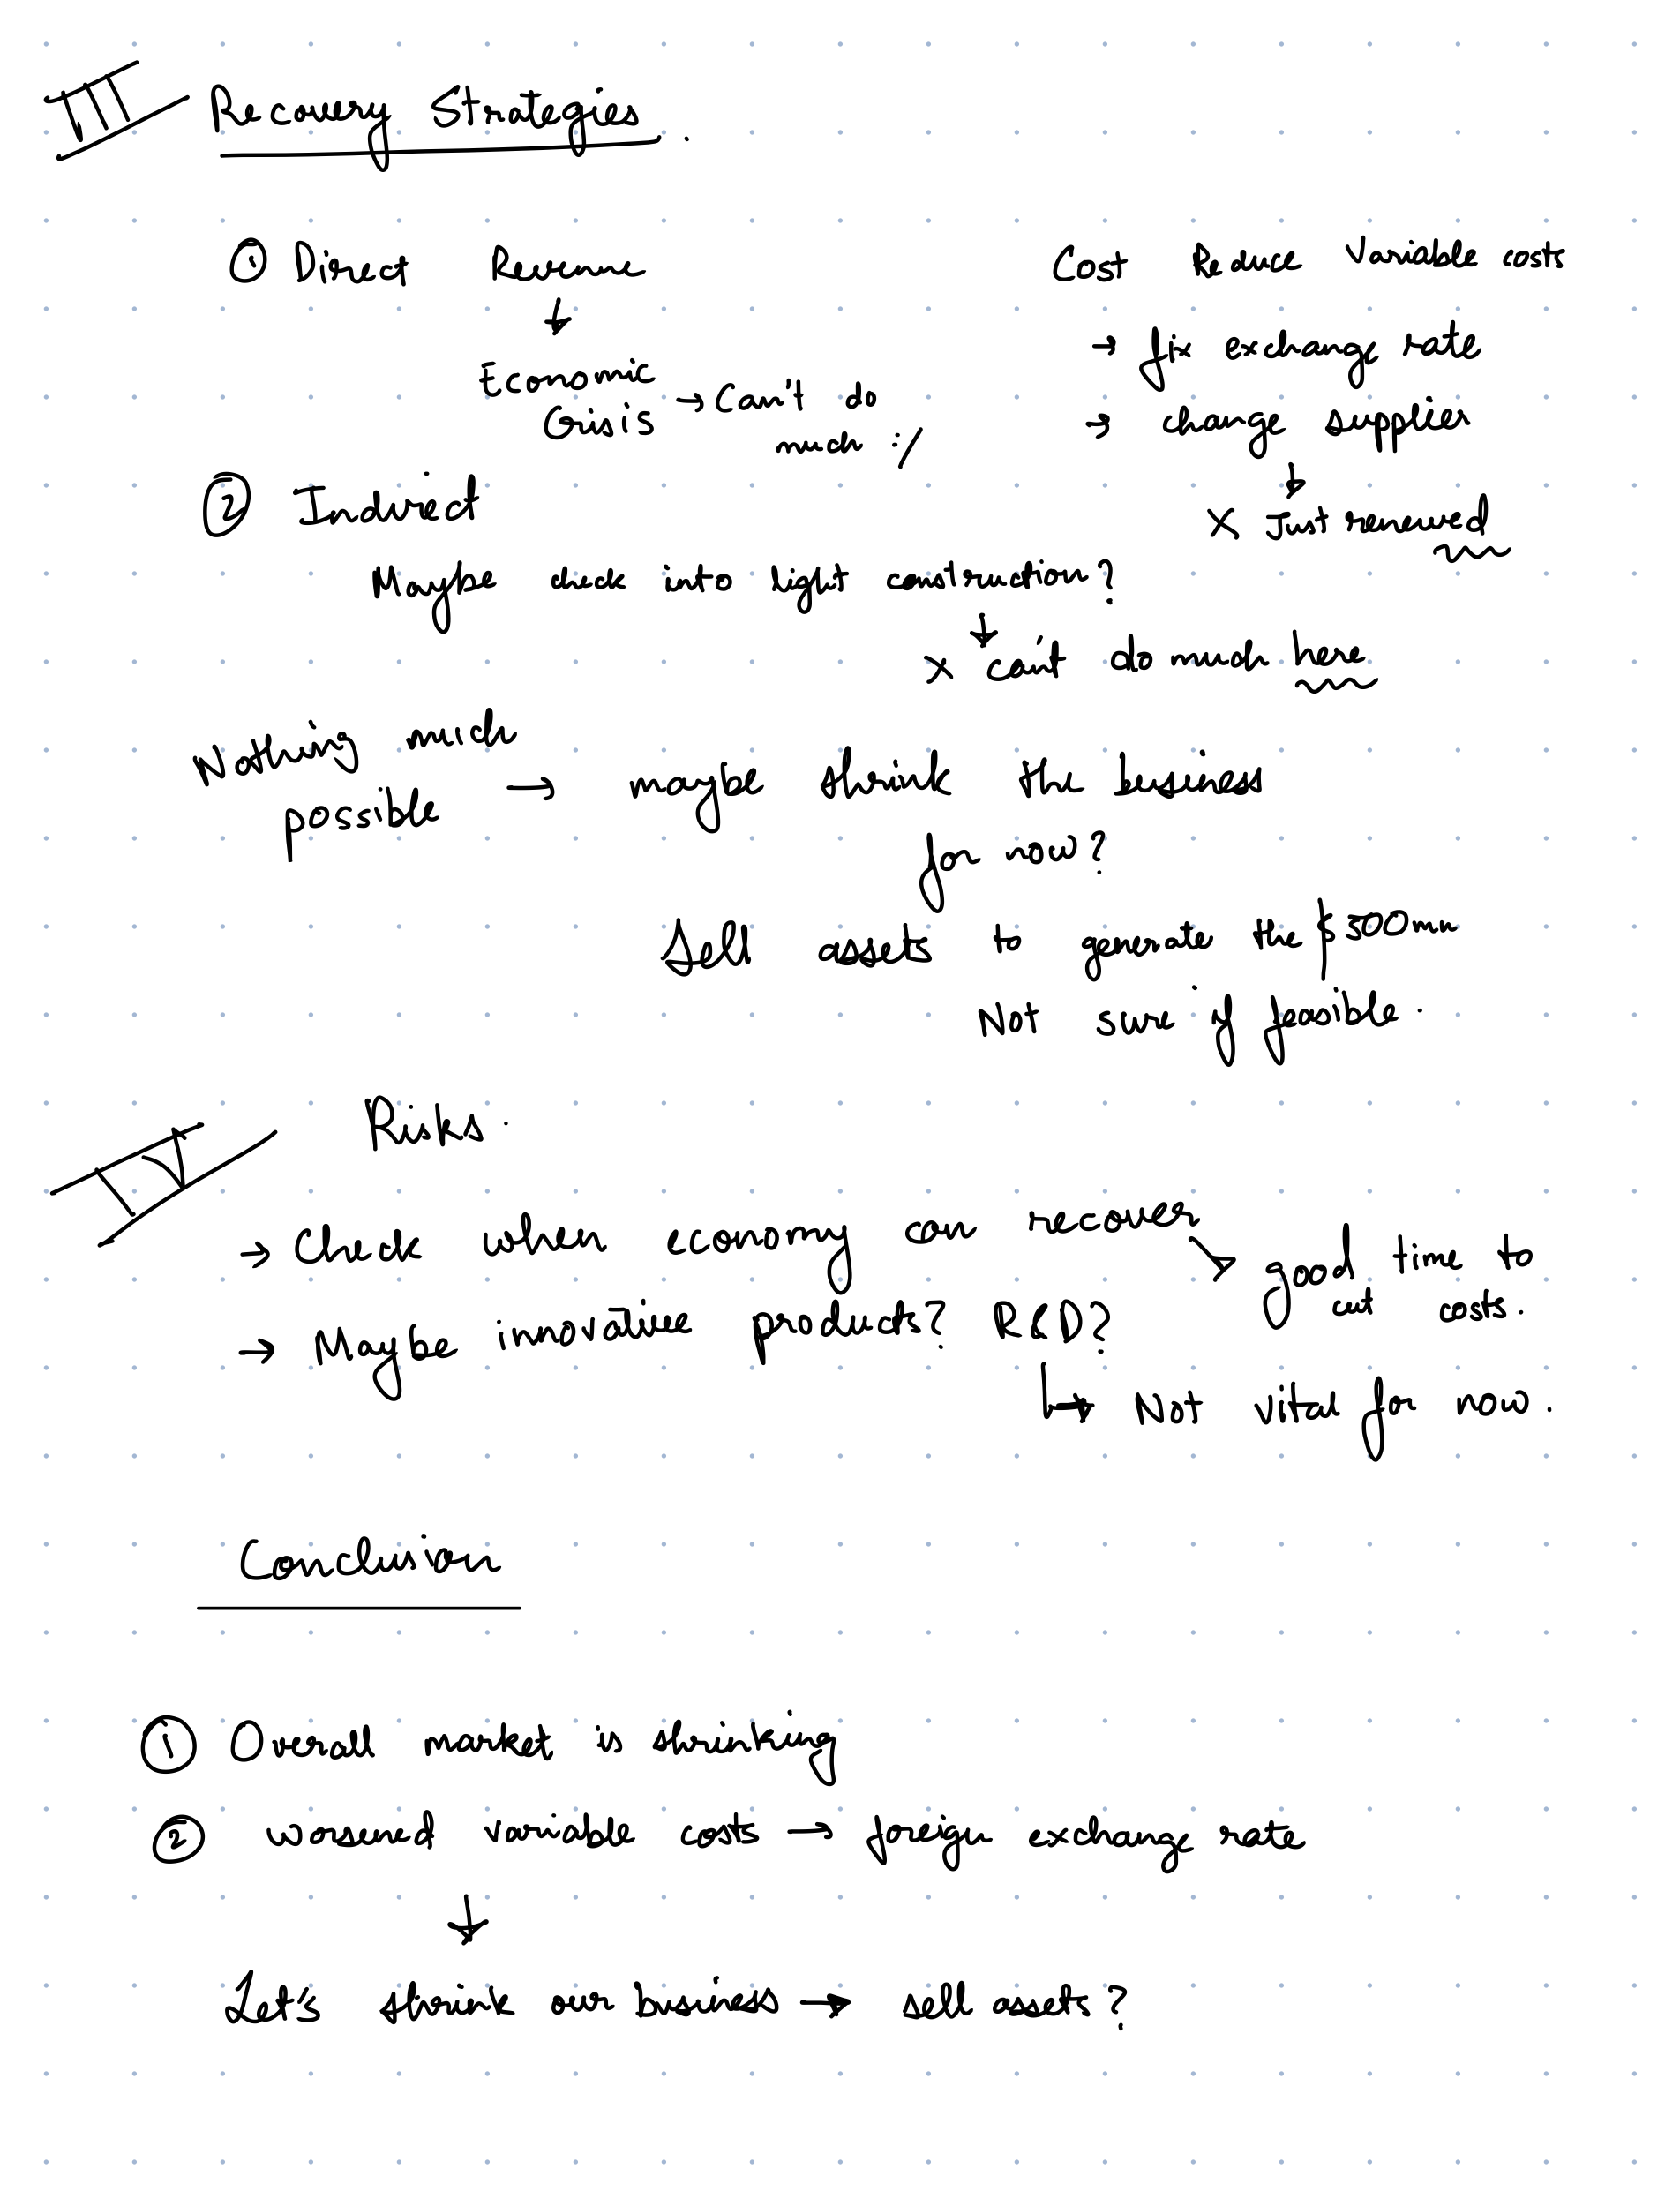 III Recovery Strategies.
① Direct Revenue
↓
Economic
Crisis → Can't do
much :/
Cost Reduce Variable costs
→ fix exchange rate
→ change supplier
↓
X Just renewed
② Indirect
Maybe check into light construction?
↓
X can't do much here
Nothing much
possible → maybe shrink the business
for now?
Sell assets to generate the $500mn
Not sure if feasible.
IV Risks.
→ Check when economy can recover → good time to
cut costs.
→ Maybe innovative products? R&D?
↳ Not vital for now.
Conclusion
① Overall market is shrinking
② worsened variable costs → foreign exchange rate
↓
Let's shrink our business → sell assets?